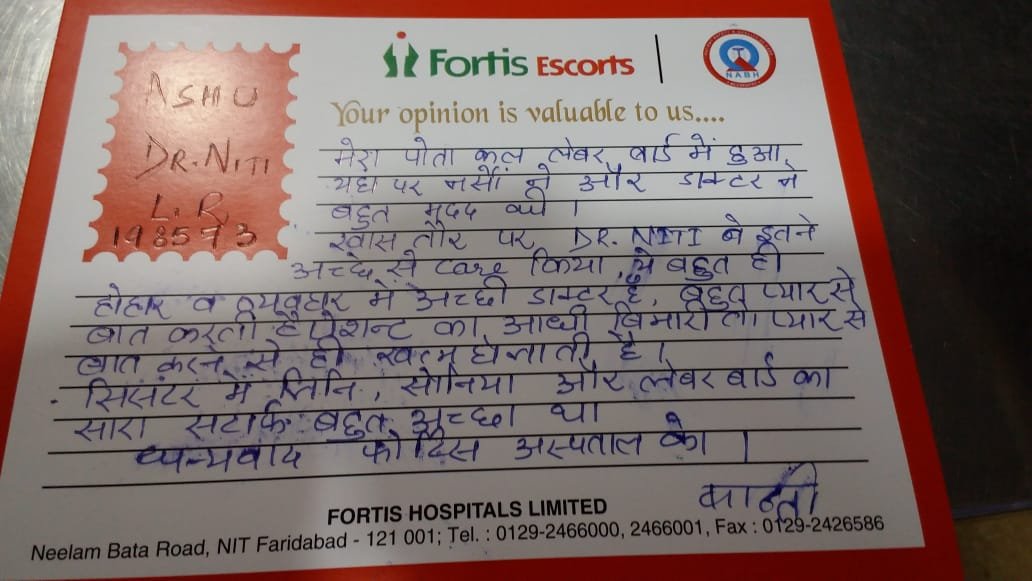 ASHU
DR. NITI
L. R
198573
Fortis ESCORTS
NABH
Your opinion is valuable to us....
मेरा पोता कल लेबर बार्ड में हुआ,
यहा पर नर्सो ने और डाक्टर ने
बहुत मदद की।
खास तौर पर, DR. NITI ने इतने
अच्छे से care किया, ये बहुत ही
होहार व व्यवहार में अच्छी डाक्टर है, बहुत प्यार से
बात करती है पेशन्ट का आधी बिमारी तो प्यार से
बात करने से ही खत्म हो जाती है।
सिसंटर में लिनि, सोनिया और लेबर बार्ड का
सारा सटार्फ बहुत अच्छा था
धन्यवाद फोर्टिस अस्पताल का।
FORTIS HOSPITALS LIMITED
Neelam Bata Road, NIT Faridabad - 121 001; Tel. : 0129-2466000, 2466001, Fax : 0129-2426586